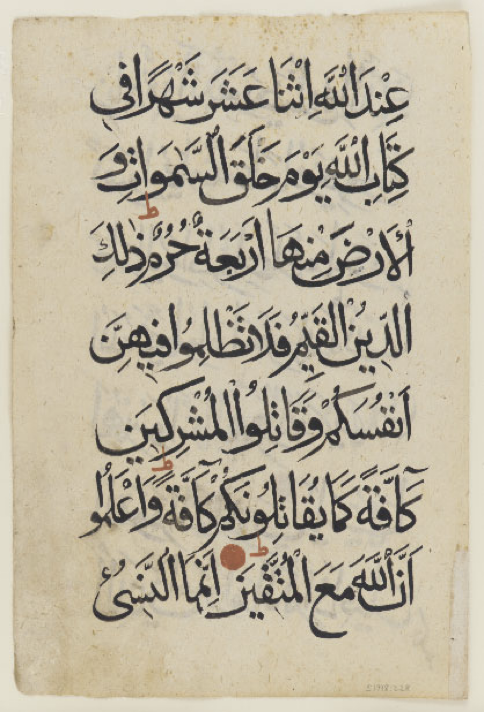 عِنْدَ اللَّهِ اثْنَا عَشَرَ شَهْرًا فِي
كِتَابِ اللَّهِ يَوْمَ خَلَقَ السَّمٰوَاتِ وَ
الْأَرْضَ مِنْهَا أَرْبَعَةٌ حُرُمٌ ذٰلِكَ
ط
الدِّينُ الْقَيِّمُ فَلَا تَظْلِمُوا فِيهِنَّ
أَنْفُسَكُمْ وَقَاتِلُوا الْمُشْرِكِينَ
كَآفَّةً كَمَا يُقَاتِلُونَكُمْ كَآفَّةً وَاعْلَمُوا
ط
أَنَّ اللَّهَ مَعَ الْمُتَّقِينَ إِنَّمَا النَّسِيءُ
ط